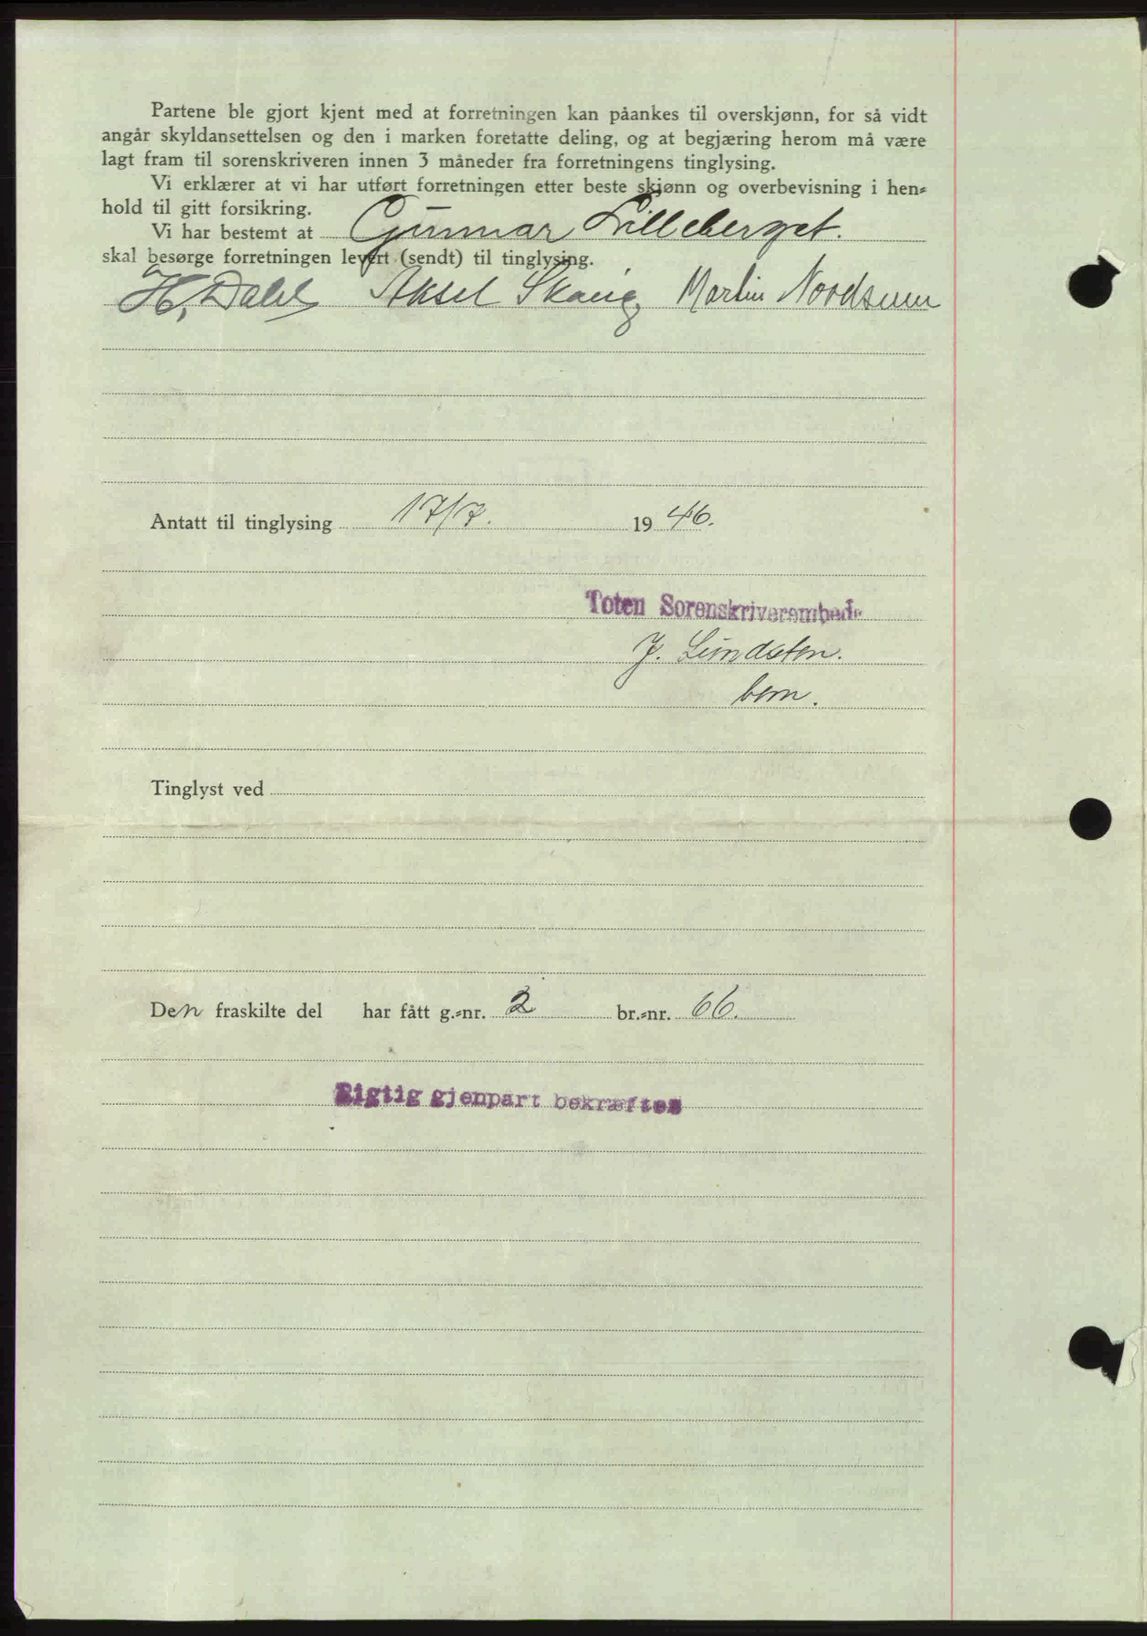 Partene ble gjort kjent med at forretningen kan påankes til overskjønn, for så vidt
angår skyldansettelsen og den i marken foretatte deling, og at begjæring herom må være
lagt fram til sorenskriveren innen 3 måneder fra forretningens tinglysing.
Vi erklærer at vi har utført forretningen etter beste skjønn og overbevisning i hen-
hold til gitt forsikring.
Vi har bestemt at Gunnar Lilleberget.
skal besørge forretningen levert (sendt) til tinglysing.
H. Dahl Aksel Skaug Martin Nordsum
Antatt til tinglysing 17/7. 1946.
Toten Sorenskriverembede
J. Lundsten.
bem.
Tinglyst ved
Den fraskilte del har fått g.-nr. 2 br.-nr. 66.
Rigtig gjenpart bekræftes